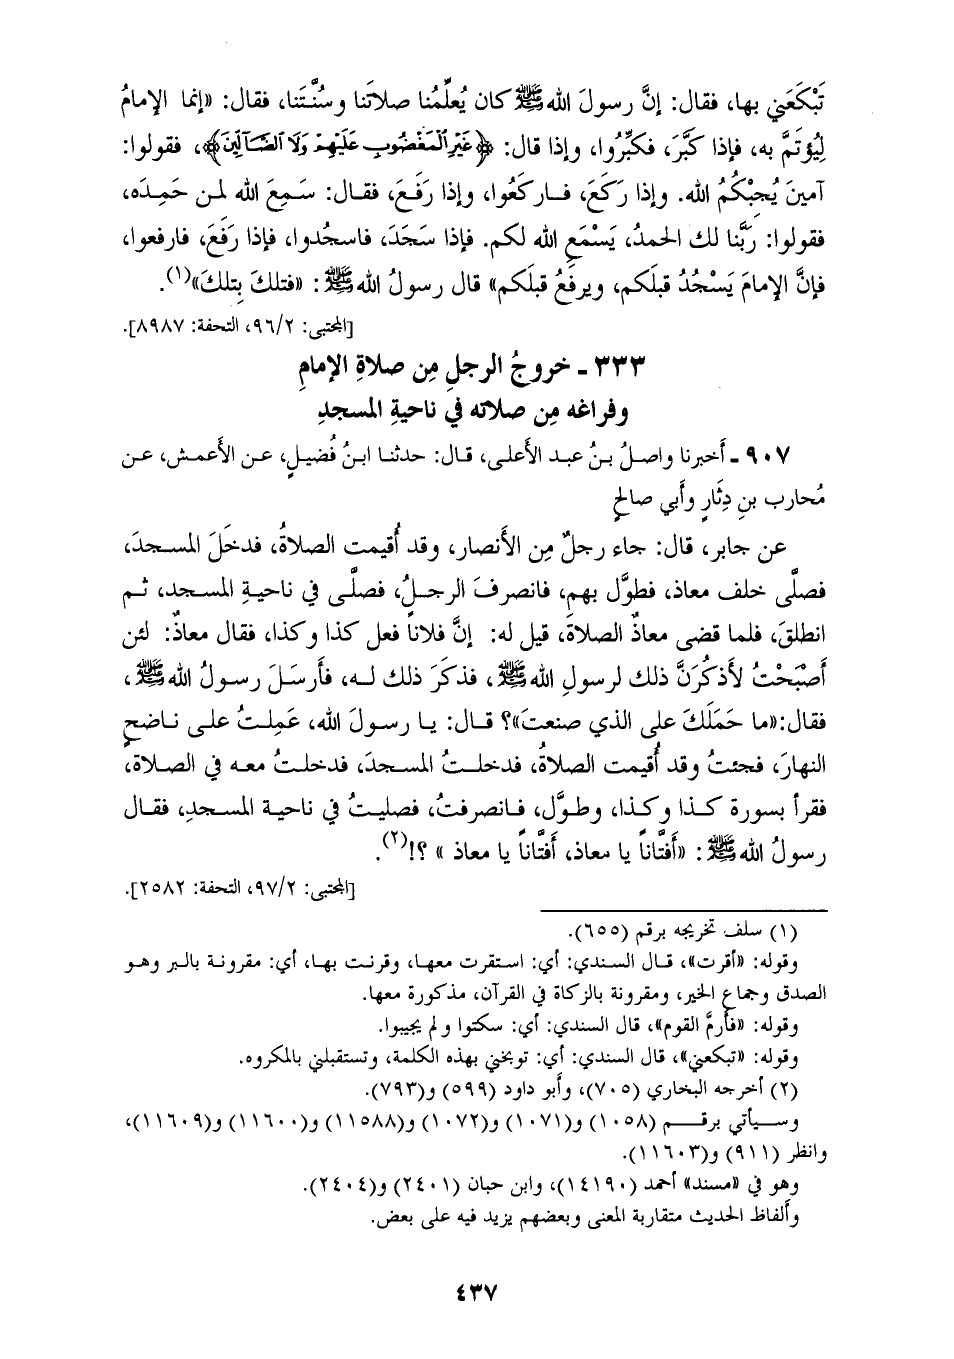 تَبْكَعَني بها، فقال: إنَّ رسولَ الله ﷺ كان يُعلِّمُنا صلاتَنا وسُنَّتَنا، فقال: «إنما الإمامُ
لِيُؤتَمَّ به، فإذا كَبَّرَ، فكبِّرُوا، وإذا قال: ﴿غَيْرِ الْمَغْضُوبِ عَلَيْهِمْ وَلَا الضَّآلِّينَ﴾، فقولوا:
آمينَ يُجِبْكُمُ الله. وإذا رَكَعَ، فاركَعُوا، وإذا رَفَعَ، فقال: سَمِعَ الله لمن حَمِدَه،
فقولوا: رَبَّنا لك الحمدُ، يَسْمَعِ الله لكم. فإذا سَجَدَ، فاسجُدوا، فإذا رَفَعَ، فارفعوا،
فإنَّ الإمامَ يَسْجُدُ قبلَكم، ويرفَعُ قبلَكم» قال رسولُ الله ﷺ: «فتلكَ بِتلكَ»(١).
[المجتبى: ٩٦/٢، التحفة: ٨٩٨٧].
٣٣٣ - خروجُ الرجلِ مِن صلاةِ الإمامِ
وفراغه مِن صلاته في ناحيةِ المسجدِ
٩٠٧ - أَخبرنا واصلُ بنُ عبد الأَعلى، قال: حدثنا ابنُ فُضيلٍ، عن الأَعمش، عن
مُحارب بنِ دِثَارٍ وأَبي صالحٍ
عن جابر، قال: جاء رجلٌ مِن الأَنصار، وقد أُقيمت الصلاةُ، فدخَلَ المسجدَ،
فصلَّى خلف معاذ، فطوَّل بهم، فانصرفَ الرجلُ، فصلَّى في ناحيةِ المسجد، ثم
انطلقَ، فلما قضى معاذٌ الصلاةَ، قيل له: إنَّ فلاناً فعل كذا وكذا، فقال معاذٌ: لئن
أَصْبَحْتُ لأَذكُرَنَّ ذلك لرسولِ الله ﷺ، فذكَرَ ذلك له، فأَرسَلَ رسولُ الله ﷺ،
فقال: «ما حَمَلَكَ على الذي صنعتَ»؟ قال: يا رسولَ الله، عَمِلتُ على ناضحٍ
النهارَ، فجئتُ وقد أُقيمت الصلاةُ، فدخلتُ المسجدَ، فدخلتُ معه في الصلاة،
فقرأ بسورة كذا وكذا، وطوَّل، فانصرفتُ، فصليتُ في ناحية المسجدِ، فقال
رسولُ الله ﷺ: «أَفتَّاناً يا معاذ، أَفتَّاناً يا معاذ » ؟!(٢).
[المجتبى: ٩٧/٢، التحفة: ٢٥٨٢].
(١) سلف تخريجه برقم (٦٥٥).
وقوله: «أقرت»، قال السندي: أي: استقرت معها، وقرنت بها، أي: مقرونة بالبر وهو
الصدق وجماع الخير، ومقرونة بالزكاة في القرآن، مذكورة معها.
وقوله: «فأَرمَّ القوم»، قال السندي: أي: سكتوا ولم يجيبوا.
وقوله: «تبكعني»، قال السندي: أي: توبخني بهذه الكلمة، وتستقبلني بالمكروه.
(٢) أخرجه البخاري (٧٠٥)، وأبو داود (٥٩٩) و(٧٩٣).
وسيأتي برقم (١٠٥٨) و(١٠٧١) و(١٠٧٢) و(١١٥٨٨) و(١١٦٠٠) و(١١٦٠٩)،
وانظر (٩١١) و(١١٦٠٣).
وهو في «مسند» أحمد (١٤١٩٠)، وابن حبان (٢٤٠١) و(٢٤٠٤).
وأَلفاظ الحديث متقاربة المعنى وبعضهم يزيد فيه على بعض.
٤٣٧